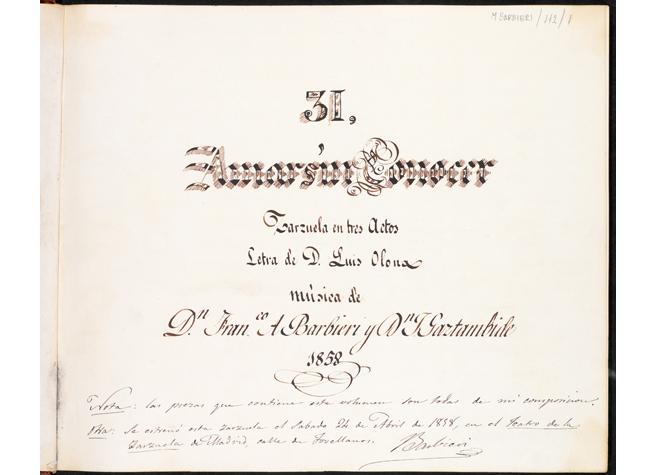 M BARBIERI/112/1
31,
Amar sin Conocer
Zarzuela en tres Actos
Letra de D. Luis Olona
música de
D.n Fran.co A Barbieri y D.n J Gaztambide
1858
Nota: las piezas que contiene este volumen son todas de mi composicion.
Otra: Se estrenó esta zarzuela el Sabado 24 de Abril de 1858, en el Teatro de la
Zarzuela de Madrid, calle de Jovellanos. Barbieri